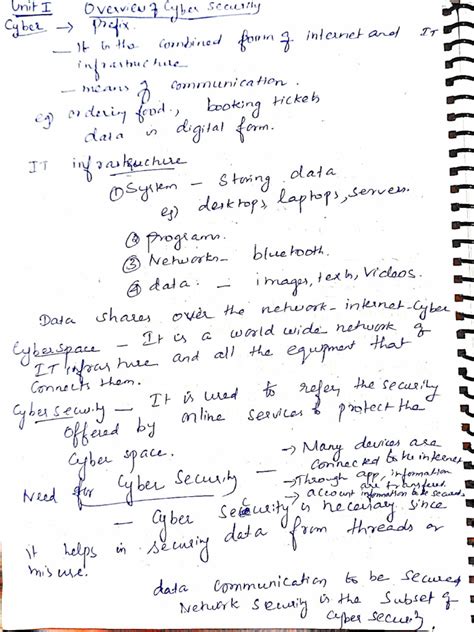 Unit I Overview of Cyber Security
Cyber → Prefix
- It is the combined form of internet and IT
infrastructure
- means of communication.
eg) ordering food, booking tickets
data is digital form.
IT infrastructure
① System - Storing data
eg) desktops, laptops, servers.
② programs.
③ Networks - bluetooth.
④ data. - images, texts, Videos.
Data shares over the network - internet - cyber
Cyberspace - It is a world wide network of
IT infrasture and all the equipment that
connects them.
Cyber security - It is used to refer, the security
offered by online services to protect the
cyber space.
→ Many devices are
connected to the internet
→ Through app, information
are transferred.
→ account information to be secured
Need for Cyber Security
- Cyber Security is necessary since
it helps in securing data from threads or
misuse.
data communication to be secured
Network security is the Subset of
cyber security.